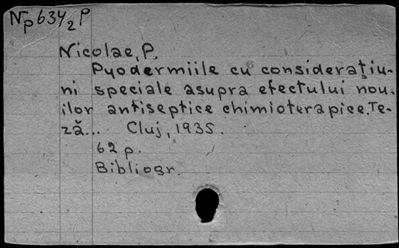 Np634₂P
Nicolae, P.
Pyodermiile cu considerațiu-
ni speciale asupra efectului nou-
ilor antiseptice chimioterapice. Te-
ză... Cluj, 1935.
62 p.
Bibliogr.